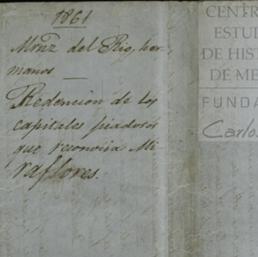 1861
Mrnz del Rio, her
manos —
Redencion de los
capitales piadosos
que reconocia Mi
raflores.
CENTR
ESTU
DE HIS
DE ME
FUNDA
Carlos